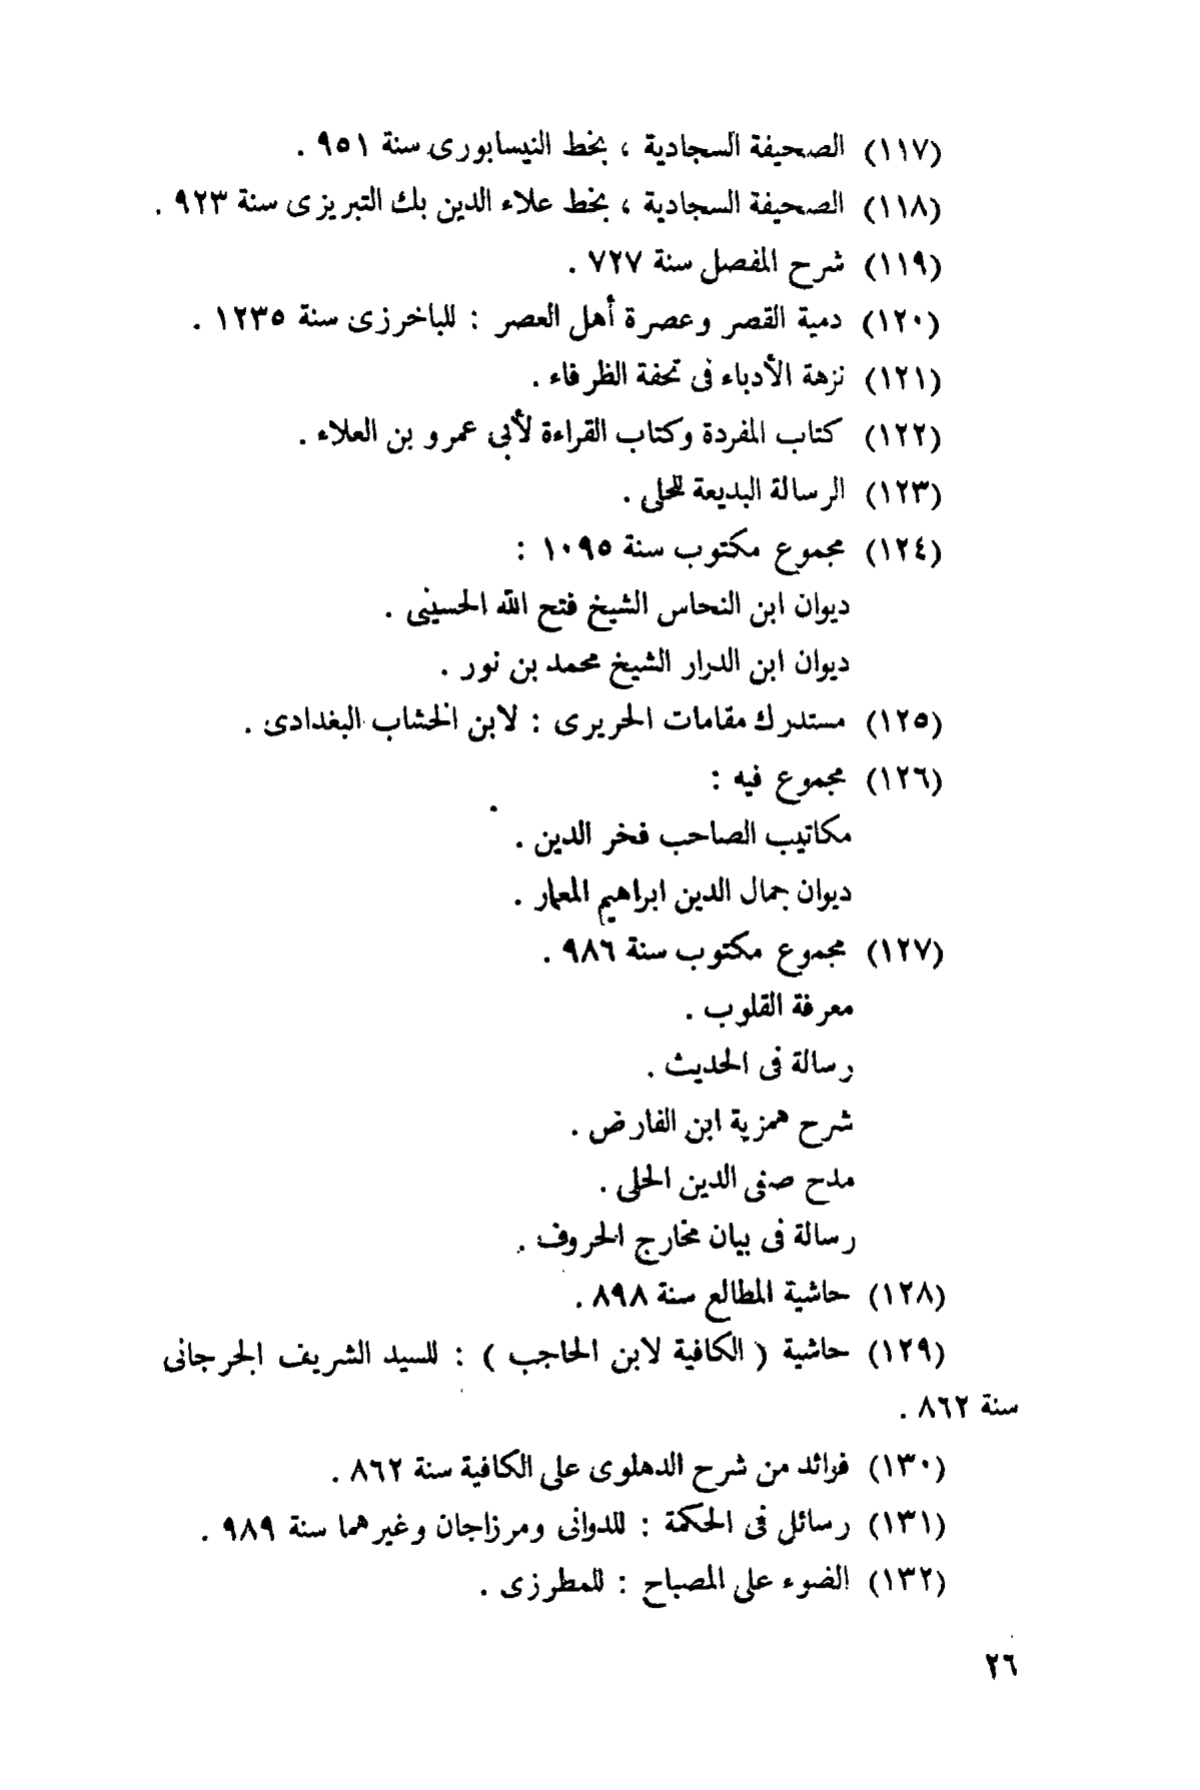 (١١٧) الصحيفة السجادية ، بخط النيسابورى سنة ٩٥١ .
(١١٨) الصحيفة السجادية ، بخط علاء الدين بك التبريزى سنة ٩٢٣ .
(١١٩) شرح المفصل سنة ٧٢٧ .
(١٢٠) دمية القصر وعصرة أهل العصر : للباخرزى سنة ١٢٣٥ .
(١٢١) نزهة الأدباء فى تحفة الظرفاء .
(١٢٢) كتاب المفردة وكتاب القراءة لأبى عمرو بن العلاء .
(١٢٣) الرسالة البديعة للحلى .
(١٢٤) مجموع مكتوب سنة ١٠٩٥ :
ديوان ابن النحاس الشيخ فتح الله الحسينى .
ديوان ابن الدرار الشيخ محمد بن نور .
(١٢٥) مستدرك مقامات الحريرى : لابن الخشاب البغدادى .
(١٢٦) مجموع فيه :
مكاتيب الصاحب فخر الدين .
ديوان جمال الدين ابراهيم المعمار .
(١٢٧) مجموع مكتوب سنة ٩٨٦ .
معرفة القلوب .
رسالة فى الحديث .
شرح همزية ابن الفارض .
مدح صفى الدين الحلى .
رسالة فى بيان مخارج الحروف .
(١٢٨) حاشية المطالع سنة ٨٩٨ .
(١٢٩) حاشية ( الكافية لابن الحاجب ) : للسيد الشريف الجرجانى
سنة ٨٦٢ .
(١٣٠) فرائد من شرح الدهلوى على الكافية سنة ٨٦٢ .
(١٣١) رسائل فى الحكمة : للدوانى ومرزاجان وغيرهما سنة ٩٨٩ .
(١٣٢) الضوء على المصباح : للمطرزى .
٢٦